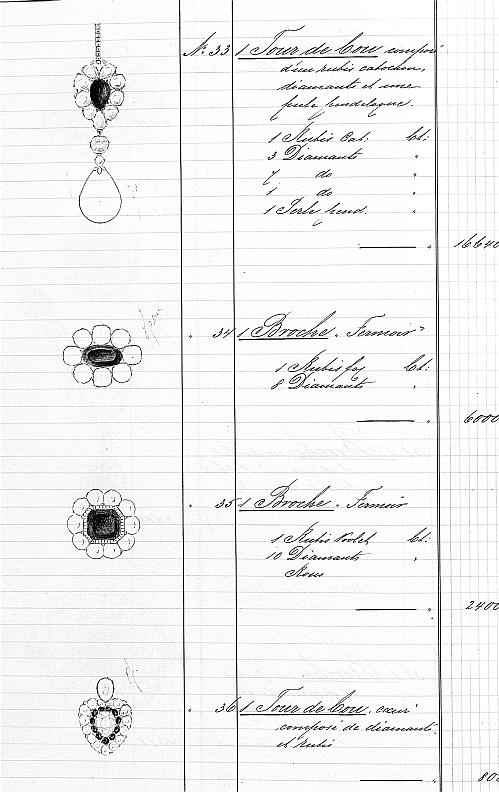 No. 33 1 Tour de Cou composé
d'un rubis cabochon,
diamants et une
perle pendeloque.
1 Rubis Cab: Ct:
3 Diamants "
7 do "
1 do "
1 Perle pend. "
"
1664
" 34 1 Broche. Fermoir
1 Rubis Ct:
8 Diamants "
" 6000
" 35 1 Broche. Fermoir
1 Rubis Ct:
10 Diamants "
Roses
" 2400
" 36 1 Tour de Cou, cœur
composé de diamants
et rubis
" 80